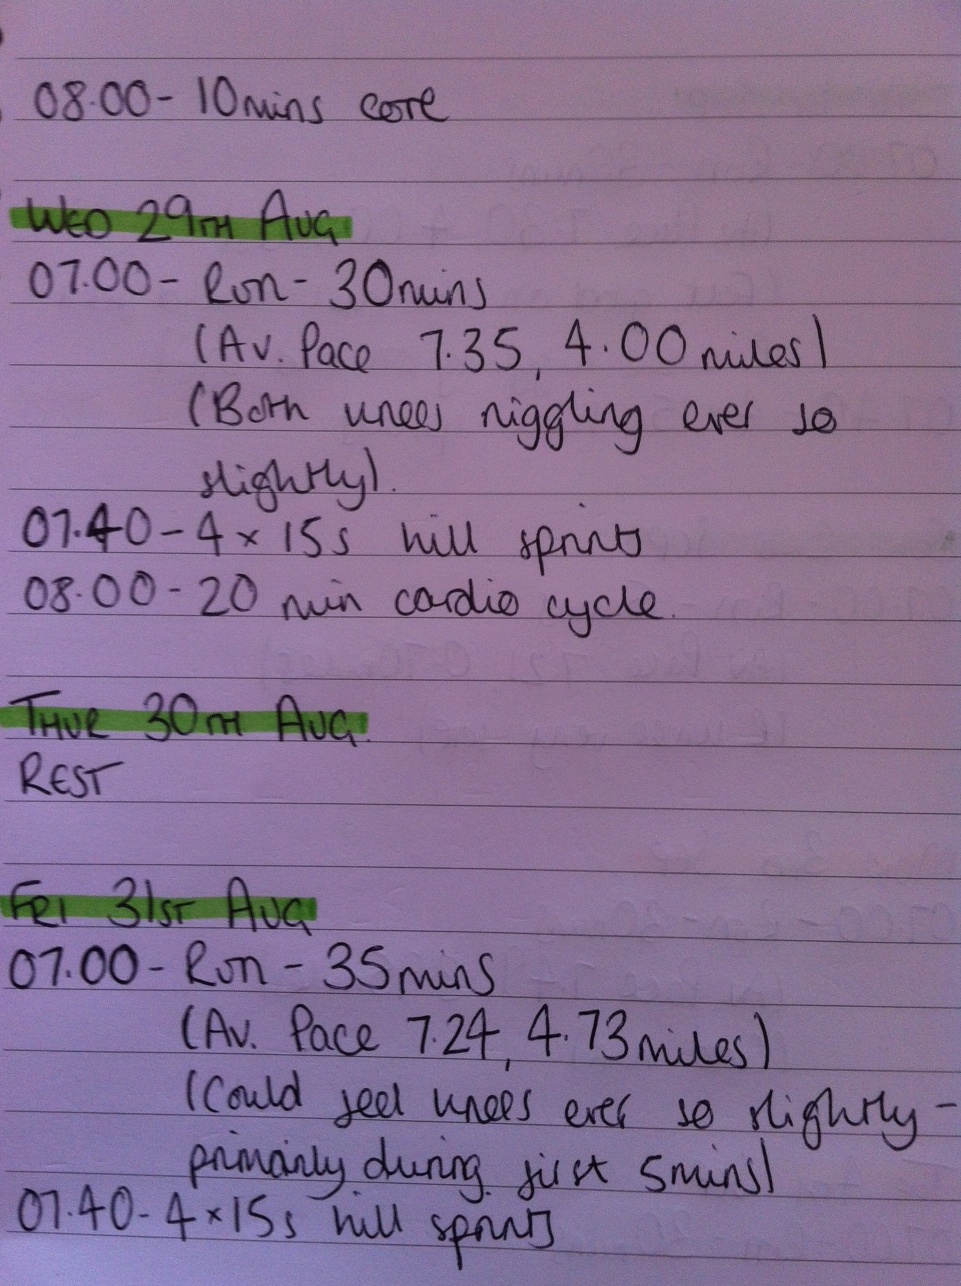 08.00 - 10mins core
WED 29TH AUG
07.00 - Run - 30mins
(Av. Pace 7.35, 4.00 miles)
(Both knees niggling ever so
slightly).
07.40 - 4 x 15s hill sprints
08.00 - 20 min cardio cycle.
THUR 30TH AUG.
REST
FRI 31ST AUG
07.00 - Run - 35mins
(Av. Pace 7.24, 4.73miles)
(Could feel knees ever so slightly -
primarily during first 5mins)
07.40 - 4 x 15s hill sprints